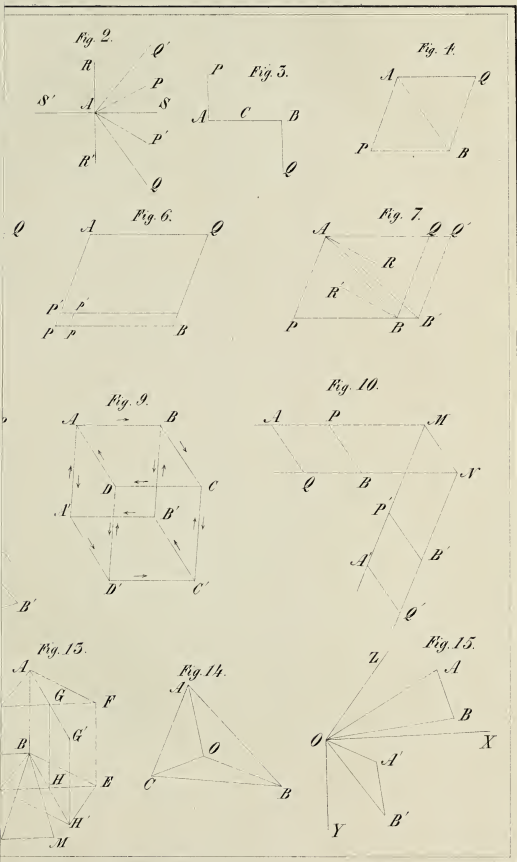 Fig. 2.
R
Q'
P
S'
A
S
P'
R'
Q
Fig. 3.
P
A
C
B
Q
Fig. 4.
A
Q
P
B
Q
Fig. 6.
A
Q
P'
p'
P
p
B
Fig. 7.
A
Q
Q'
R
R'
P
B
B'
Fig. 9.
A
B
D
C
A'
B'
D'
C'
Fig. 10.
A
P
M
Q
B
N
P'
A'
B'
Q'
B'
Fig. 13.
A
G
F
G'
B
H
E
H'
M
Fig. 14.
A
O
C
B
Fig. 15.
Z
A
B
O
X
A'
B'
Y